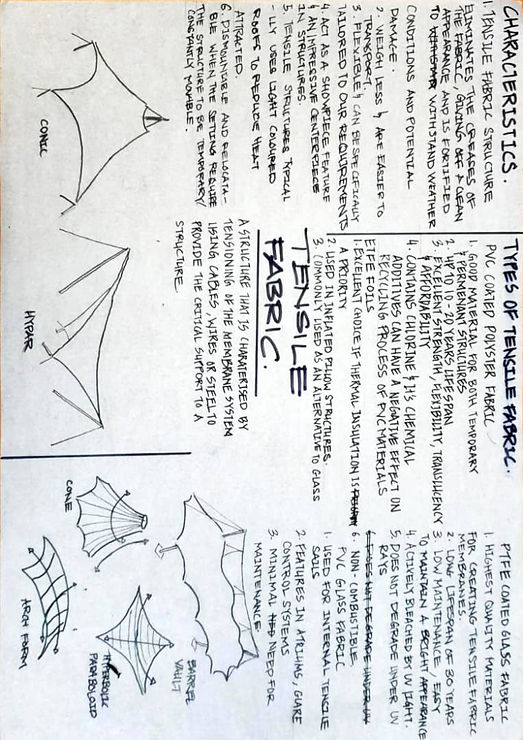 CHARACTERISTICS.
1. TENSILE FABRIC STRUCTURE
ELIMINATES THE CREASES OF
THE FABRIC, GIVING OFF A CLEAN
APPEARANCE AND IS FORTIFIED
TO WITHSTAND WEATHER
CONDITIONS AND POTENTIAL
DAMAGE.
2. WEIGH LESS & ARE EASIER TO
TRANSPORT.
3. FLEXIBLE & CAN BE SPECIFICALLY
TAILORED TO OUR REQUIREMENTS
4. ACT AS A SHOWPIECE FEATURE
& AN IMPRESSIVE CENTERPIECE
IN STRUCTURES.
5. TENSILE STRUCTURES TYPICAL
-LLY USES LIGHT COLOURED
ROOFS TO REDUCE HEAT
ATTRACTED.
6. DISMOUNTABLE AND RELOCATA-
BLE WHEN THE SETTING REQUIRE
THE STRUCTURE TO BE TEMPORARY/
CONSTANTLY MOVABLE.
CONIC
TYPES OF TENSILE FABRIC.
PVC COATED POLYSTER FABRIC
1. GOOD MATERIAL FOR BOTH TEMPORARY
& PERMENANT STRUTURES
2. UPTO 10-20 YEARS LIFE SPAN
3. EXCELLENT STRENGTH, FLEXIBILITY, TRANSLUCENCY
& AFFORDABILITY
4. CONTAINS CHLORINE & ITS CHEMICAL
ADDITIVES CAN HAVE A NEGATIVE EFFECT ON
RECYCLING PROCESS OF PVC MATERIALS
ETFE FOILS
1. EXCELLENT CHOICE IF THERMAL INSULATION IS
A PRIORITY
2. USED IN INFLATED PILLOW STRUCTURES.
3. COMMONLY USED AS AN ALTERNATIVE TO GLASS
TENSILE
FABRIC.
A STRUCTURE THAT IS CHARATERISED BY
TENSIONING OF THE MEMBRANE SYSTEM
USING CABLES, WIRES OR STEEL TO
PROVIDE THE CRITICAL SUPPORT TO A
STRUCTURE
HYPAR
PTFE COATED GLASS FABRIC
1. HIGHEST QUALITY MATERIALS
FOR CREATING TENSILE FABRIC
MEMBRANES
2. LONG LIFESPAN OF 30 YEARS
3. LOW MAINTENANCE, EASY
TO MAINTAIN A BRIGHT APPEARANCE
4. ACTIVELY BLEACHED BY UV LIGHT.
5. DOES NOT DEGRADE UNDER UV
RAYS
6. DOES NOT DEGRADE UNDER UV
6. NON-COMBUSTIBLE
PVC GLASS FABRIC
1. USED FOR INTERNAL TENSILE
SAILS
2. FEATURES IN ATRIUMS, GLARE
CONTROL SYSTEMS
3. MINIMAL NEED FOR
MAINTENANCE
BARREL
VAULT
CONE
HYPERBOLIC
PARABOLOID
ARCH FORM